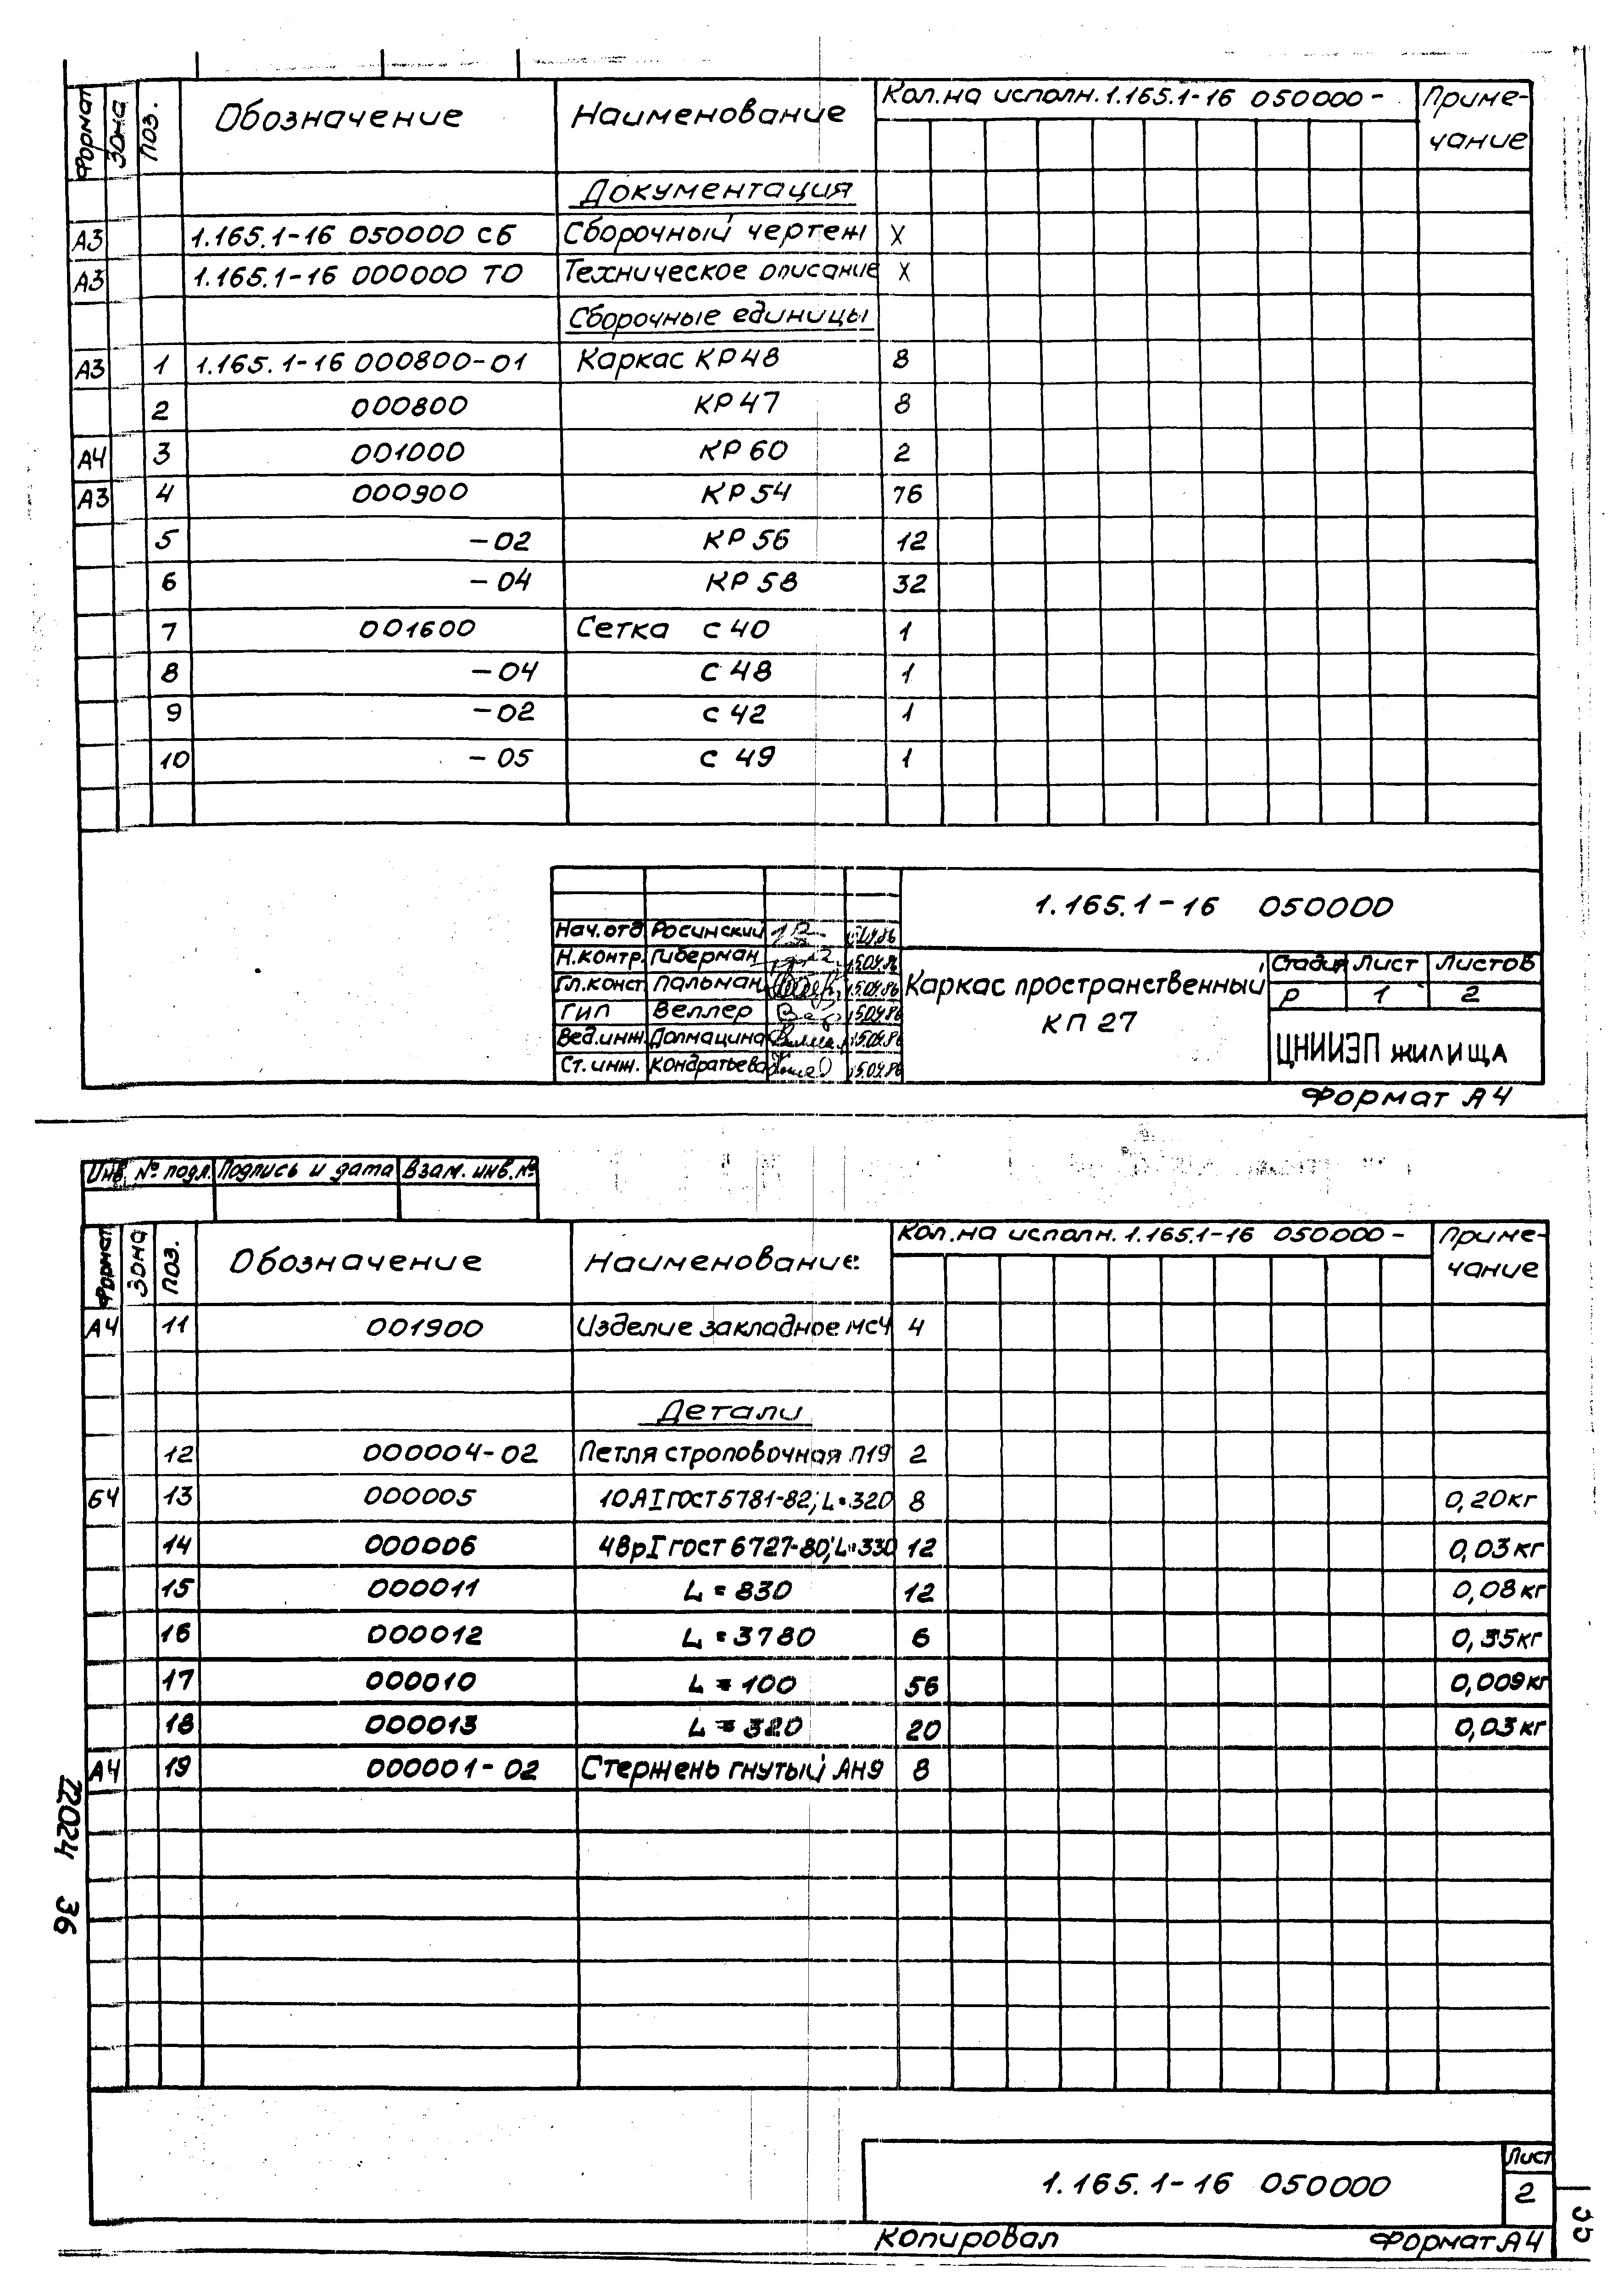 Формат Зона Поз. Обозначение Наименование Кол.на исполн.1.165.1-16 050000- Приме-
чание
Документация
А3 1.165.1-16 050000 СБ Сборочный чертеж Х
А3 1.165.1-16 000000 ТО Техническое описание Х
Сборочные единицы
А3 1 1.165.1-16 000800-01 Каркас КР48 8
2 000800 КР47 8
А4 3 001000 КР60 2
А3 4 000900 КР54 76
5 -02 КР56 12
6 -04 КР58 32
7 001600 Сетка С40 1
8 -04 С48 1
9 -02 С42 1
10 -05 С49 1
1.165.1-16 050000
Нач.отд Росинский
Н.контр. Гиберман 15.04.86
Гл.конст. Пальман 15.04.86
ГИП Веллер 15.04.86
Вед.инж. Долмацина 15.04.86
Ст.инж. Кондратьева 15.04.86
Каркас пространственный
КП 27
Стадия Лист Листов
Р 1 2
ЦНИИЭП жилища
Формат А4
Инв.№подл. Подпись и дата Взам.инв.№
Формат Зона Поз. Обозначение Наименование Кол.на исполн.1.165.1-16 050000- Приме-
чание
А4 11 001900 Изделие закладное МС4 4
Детали
12 000004-02 Петля строповочная П19 2
БЧ 13 000005 10АI ГОСТ5781-82; L=320 8 0,20кг
14 000006 4ВрI ГОСТ6727-80; L=330 12 0,03кг
15 000011 L=830 12 0,08кг
16 000012 L=3780 6 0,35кг
17 000010 L=100 56 0,009кг
18 000013 L=320 20 0,03кг
А4 19 000001-02 Стержень гнутый АН9 8
22024 36
1.165.1-16 050000
Лист
2
Копировал Формат А4
35